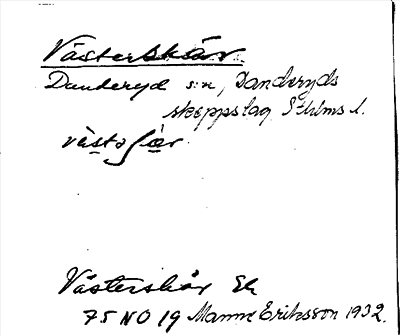 Västerskär
Danderyd s:n, Danderyds
skeppslag Sthlms l.
Västerskär Ek
75 NO 19 Manne Eriksson 1932.